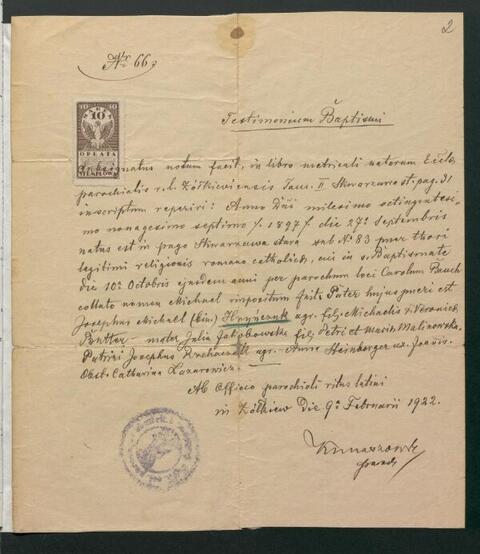 2
Nr 669
10 10
OPŁATA
STEMPLOWA
Testimonium Baptismi
notum facit, in libro metricali natorum Eccle.
parochialis r. l. Zołkieviensis Tom. II Skwarzawa st. pag. 31
inscriptum reperiri: Anno Dni milesimo octingentesi
mo nonagesimo septimo /.1897/. die 27a Septembris
natus est in pago Skwarzawa stara sub No 83 puer thori
legitimi religionis romano catholicae, cui in s. Baptismate
die 10a Octobris ejusdem anni per parochum loci Carolum
collato nomen Michael impositum fuit. Pater hujus pueri est
Josephus Michael (bin.) Hryńczuk agr. fil. Michaelis et Veronica
mater Julia Jakobowska fil. Petri et Mariae Malinowska.
Patrini Josephus agr. Anna Steinberger ux. Joan̄is.
Obst. Catharina Lazarowicz.
Ab Officio parochiali ritus latini
in Żółkiew Die 9a Februarii 1922.